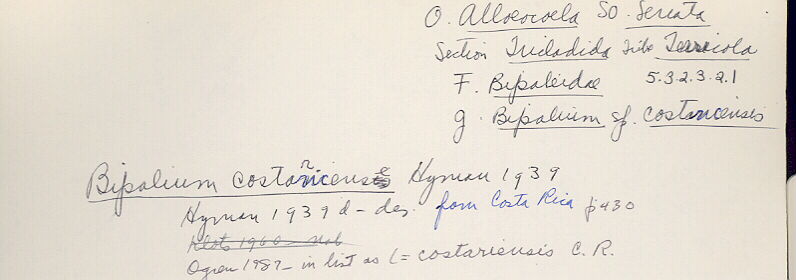 O. Alloeocoela SO. Seriata
Section Tricladida Tribe Terricola
F. Bipaliidae 5.3.2.3.2.1
g. Bipalium sp. costaricensis
Bipalium costaricense Hyman 1939
Hyman 1939 d - des. from Costa Rica p 430
Klots 1960 - nab
Ogren 1987 - in list as (= costariensis C. R.